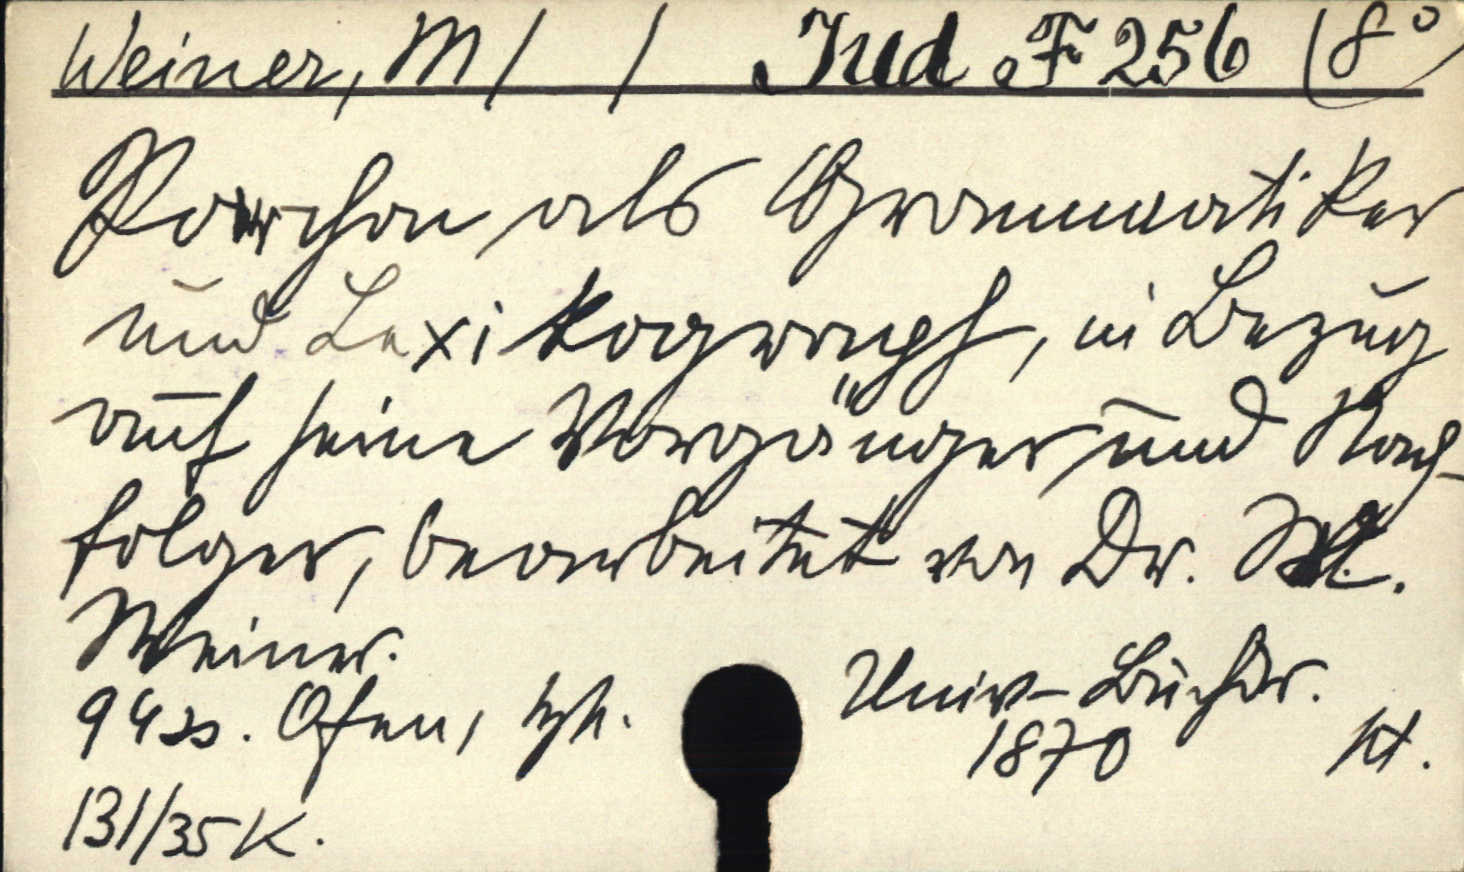 Weiner, M / / Jud F 256 (8°)
Parchon als Grammatiker
und Lexikograph, in Bezug
auf seine Vorgänger und Nach-
folger, bearbeitet von Dr. M.
Weiner.
94 SS. Ofen, kgl. Univ-Buchdr.
1870 Kt.
131/35 K.